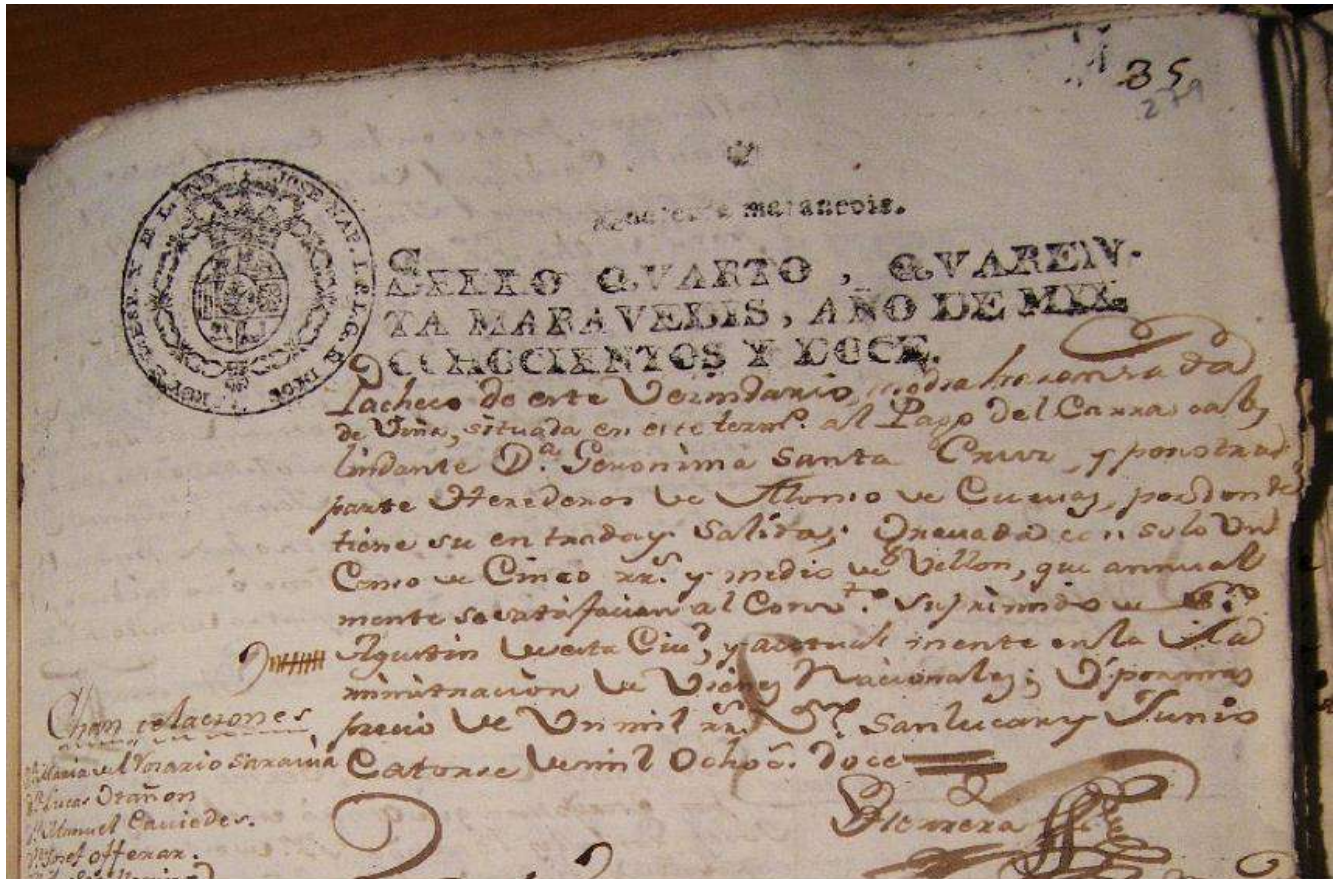 35
279
quarenta maravedis.
SELLO QVARTO, QVAREN-
TA MARAVEDIS, AÑO DE MIL
OCHOCIENTOS Y DOCE.
JOSE NAP. I. P. L. G. D. D. REY D. ESP. Y D. L. IND.
Pacheco de este Vecindario, media aranzada
de Viña, situada en este termº. al Pago del Carrascal,
lindante Dª. Geronima Santa Cruz, y por otra
parte Herederos de Alonso de Cuevas, por donde
tiene su entrada y Salida; Gravada con solo Un
Censo de Cinco rrˢ. y medio de Vellon, que annual
mente se satisfacian al Convᵗº. Suprimido de Sⁿ.
Agustin de esta Ciuᵈ, y actualmente en la Ad
ministracion de Vienes Nacionales; por
precio de Un mil rrˢ. Vⁿ. Sanlucar y Junio
Catorse de mil Ochoˢ. doce
Herrera
Chancelaciones
Dª Maria del Rosario Saraiva
Dⁿ Lucas Otañon
Dⁿ Manuel Caviedes.
Dⁿ Josef